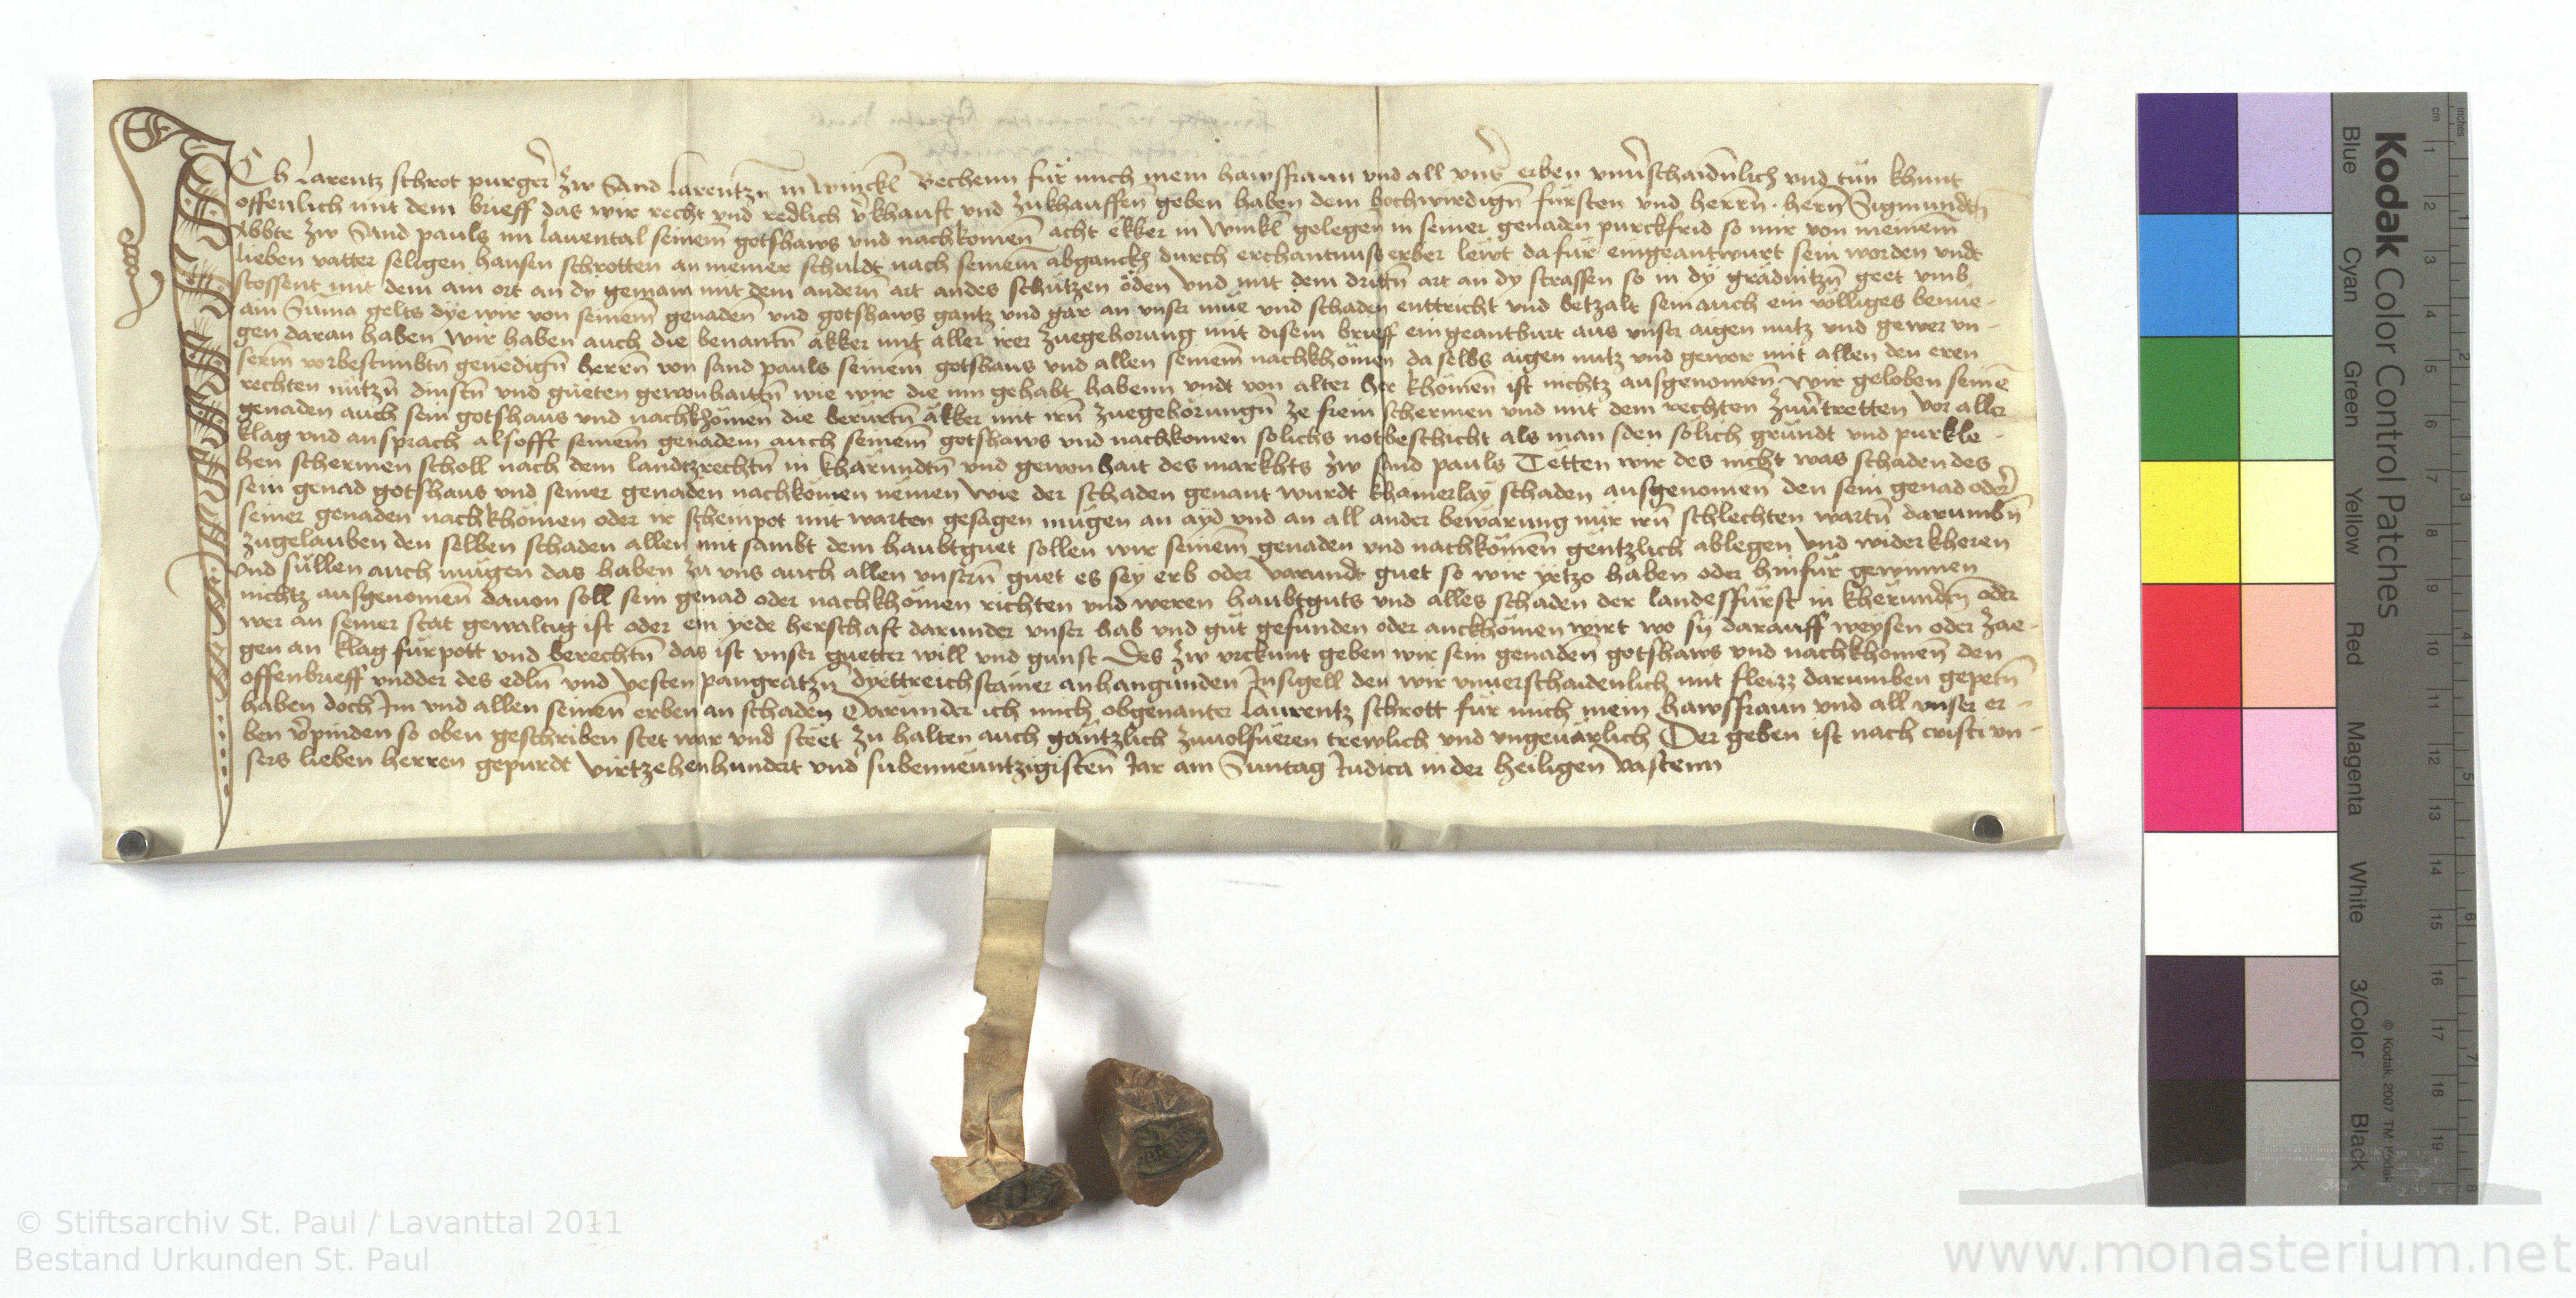 Ich Larentz schrot purger zw Sand Larentzn in winckl Bechenn für mich mein hawssfraun vnd all vnser erben vnuerschaidnlich vnd tün khunt
offennlich mit dem brieff das wir recht vnd redlich verkhaufft vnd zukhauffen geben haben dem hochwirdign fürsten vnd herrn hern Sigmundtn
Abbte zw Sand pauls im lauental seinem gotshaws vnd nachkomen acht ekker in winkl gelegen in seiner genaden purckfrid so mir von meinem
lieben vatter seligen hansen schrotten an meiner schuldt nach seinem abganckh durch erchantnuss erber lewt dafür eingeantwurt sein worden vndt
stossent mit dem ain ort an dy gemain mit dem andern art an des schützen öden vnd mit dem drittn art an dy strassen so in dy grädnitzn geet vmb
ain Suma gelts dye wir von seinem genaden vnd gotshaws gantz vnd gar an vnser müe vnd schaden enttricht vnd betzalt sein auch ein völliges benüe-
gen daran haben wir haben auch die benantn äkker mit aller irer zuegehorung mit disem brieff eingeantburt aus vnser aigen nutz vnd gewer vn-
serm vorbestimbtn genedign herrn von sand pauls seinem gotshaus vnd allen seinem nachkhomen daselbs aigen nutz vnd gewer mit allen den eren
rechten nützn dinstn vnd güeten gewonhaittn wie wir die inn gehabt habenn vndt von alter her khömen ist nichtz ausgenomen wir geloben seinē
genaden auch sein gotshaus vnd nachkhömen die berürtn äkker mit irn zuegehörungn ze frein schermen vnd mit dem rechten zuuertretten vor aller
klag vnd ansprach alsofft seinem genadem auch seinem gotshaws vnd nachkomen solichs not beschicht als man den solich gründt vnd purkle-
hen schermen scholl nach dem landtzrechtn in kharündtn vnd gewonhait des markhts zw sand pauls Tetten wir des nicht was schaden des
sein genad gotshaus vnd seiner genaden nachkömen nemen wie der schaden genant wurdt khainerlay schaden ausgenomen den sein genad oder
seiner genaden nachkhömen oder ir scheinpot mit warten gesagen mügen an ayd vnd an all ander bewarung nür irn schlechten wartn darumbn
zugelauben den selben schaden allen mit sambt dem haubtguet sollen wir seinem genaden vnd nachkömen gentzlich ablegen vnd widerkheren
vnd süllen auch mügen das haben zu vns auch allen vnsern guet es sey erb oder varundt guet so wir yetzo haben oder hinfür gewinnen
nichtz ausgenomen dauon soll sein genad oder nachkhömen richten vnd weren haubtguts vnd alles schaden der landesfürst in kherundn oder
wer an seiner stat gewaltig ist oder ein yede herschaft darunder vnser hab vnd güt gefunden oder anckhömen wirt wo sy darauff weysen oder zae-
gen an klag fürpott vnd berechtn das ist vnser guetter will vnd gunst Des zw vrckunt geben wir sein genaden gotshaws vnd nachkhomen den
offenbrieff vndder des edln vnd vesten pangratzn dyettreichstainer anhangunden Insigell den wir vnuerschaidenlich mit fleizz darumben gepetn
haben doch Im vnd allen seinen erben an schaden Darunder ich mich obgenanter Laurentz schrott für mich mein hawsfraun vnd all vnser er-
ben verpinden so oben geschriben stet war vnd steet zu halten auch gäntzlich zuuolfüeren trewlich vnd vngeuärlich Der geben ist nach cristi vn-
sers lieben herren gepurdt virtzehenhundert vnd sibenneuntzigisten Jar am Suntag Judica in der heiligen vastenn
Kodak Color Control Patches
Blue Cyan Green Yellow Red Magenta White 3/Color Black
© Kodak, 2007 TM: Kodak
cm 1 2 3 4 5 6 7 8 9 10 11 12 13 14 15 16 17 18 19
inches 1 2 3 4 5 6 7 8
© Stiftsarchiv St. Paul / Lavanttal 2011
Bestand Urkunden St. Paul
www.monasterium.net